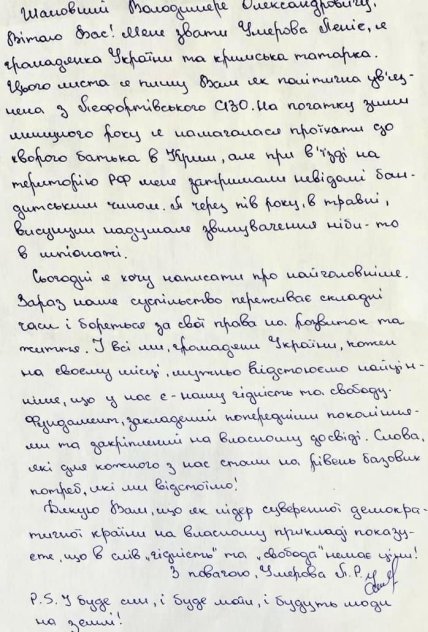 Шановний Володимире Олександровичу,
Вітаю Вас! Мене звати Умерова Леніє, я
громадянка України та кримська татарка.
Цього листа я пишу Вам як політична ув'яз-
нена з Лефортівського СІЗО. На початку зими
минулого року я намагалася проїхати до
хворого батька в Крим, але при в'їзді на
територію РФ мене затримали невідомі бан-
дитським чином. А через пів року, в травні,
висунули надумане звинувачення ніби-то
в шпіонаті.
Сьогодні я хочу написати про найголовніше.
Зараз наше суспільство переживає складні
часи і бореться за свої права на розвиток та
життя. І всі ми, громадяни України, кожен
на своєму місці, мужньо відстоюємо найцін-
ніше, що у нас є - нашу гідність та свободу.
Фундамент, закладений попередніми покоління-
ми та закріплений на власному досвіді. Слова,
які для кожного з нас стали на рівень базових
потреб, які ми відстоїмо!
Дякую Вам, що як лідер суверенної демокра-
тичної країни на власному прикладі показу-
єте, що в слів „гідність" та „свобода" немає ціни!
З повагою, Умерова Л.Р.
P.S. І буде син, і буде мати, і будуть люди
на землі!